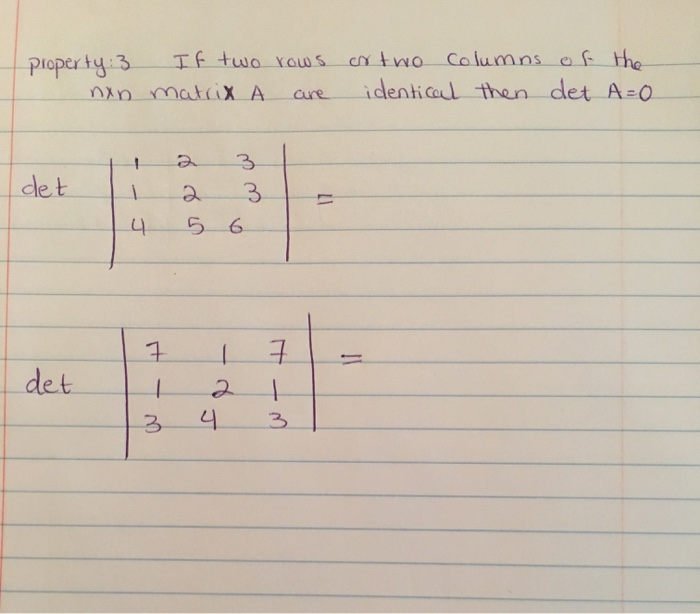 property:3 If two rows or two columns of the
nxn matrix A are identical then det A=0
1 2 3
det 1 2 3 =
4 5 6
7 1 7 =
det 1 2 1
3 4 3